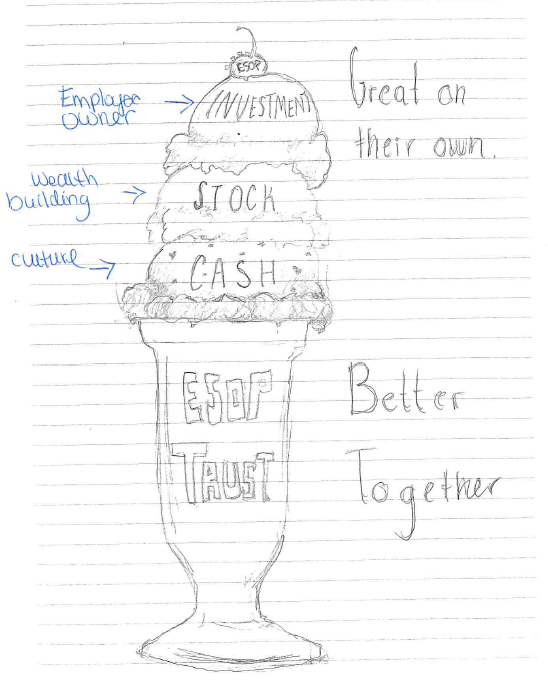 ESOP
Employee
owner
INVESTMENT
Great on
their own.
Wealth
building
STOCK
culture
CASH
ESOP
TRUST
Better
Together